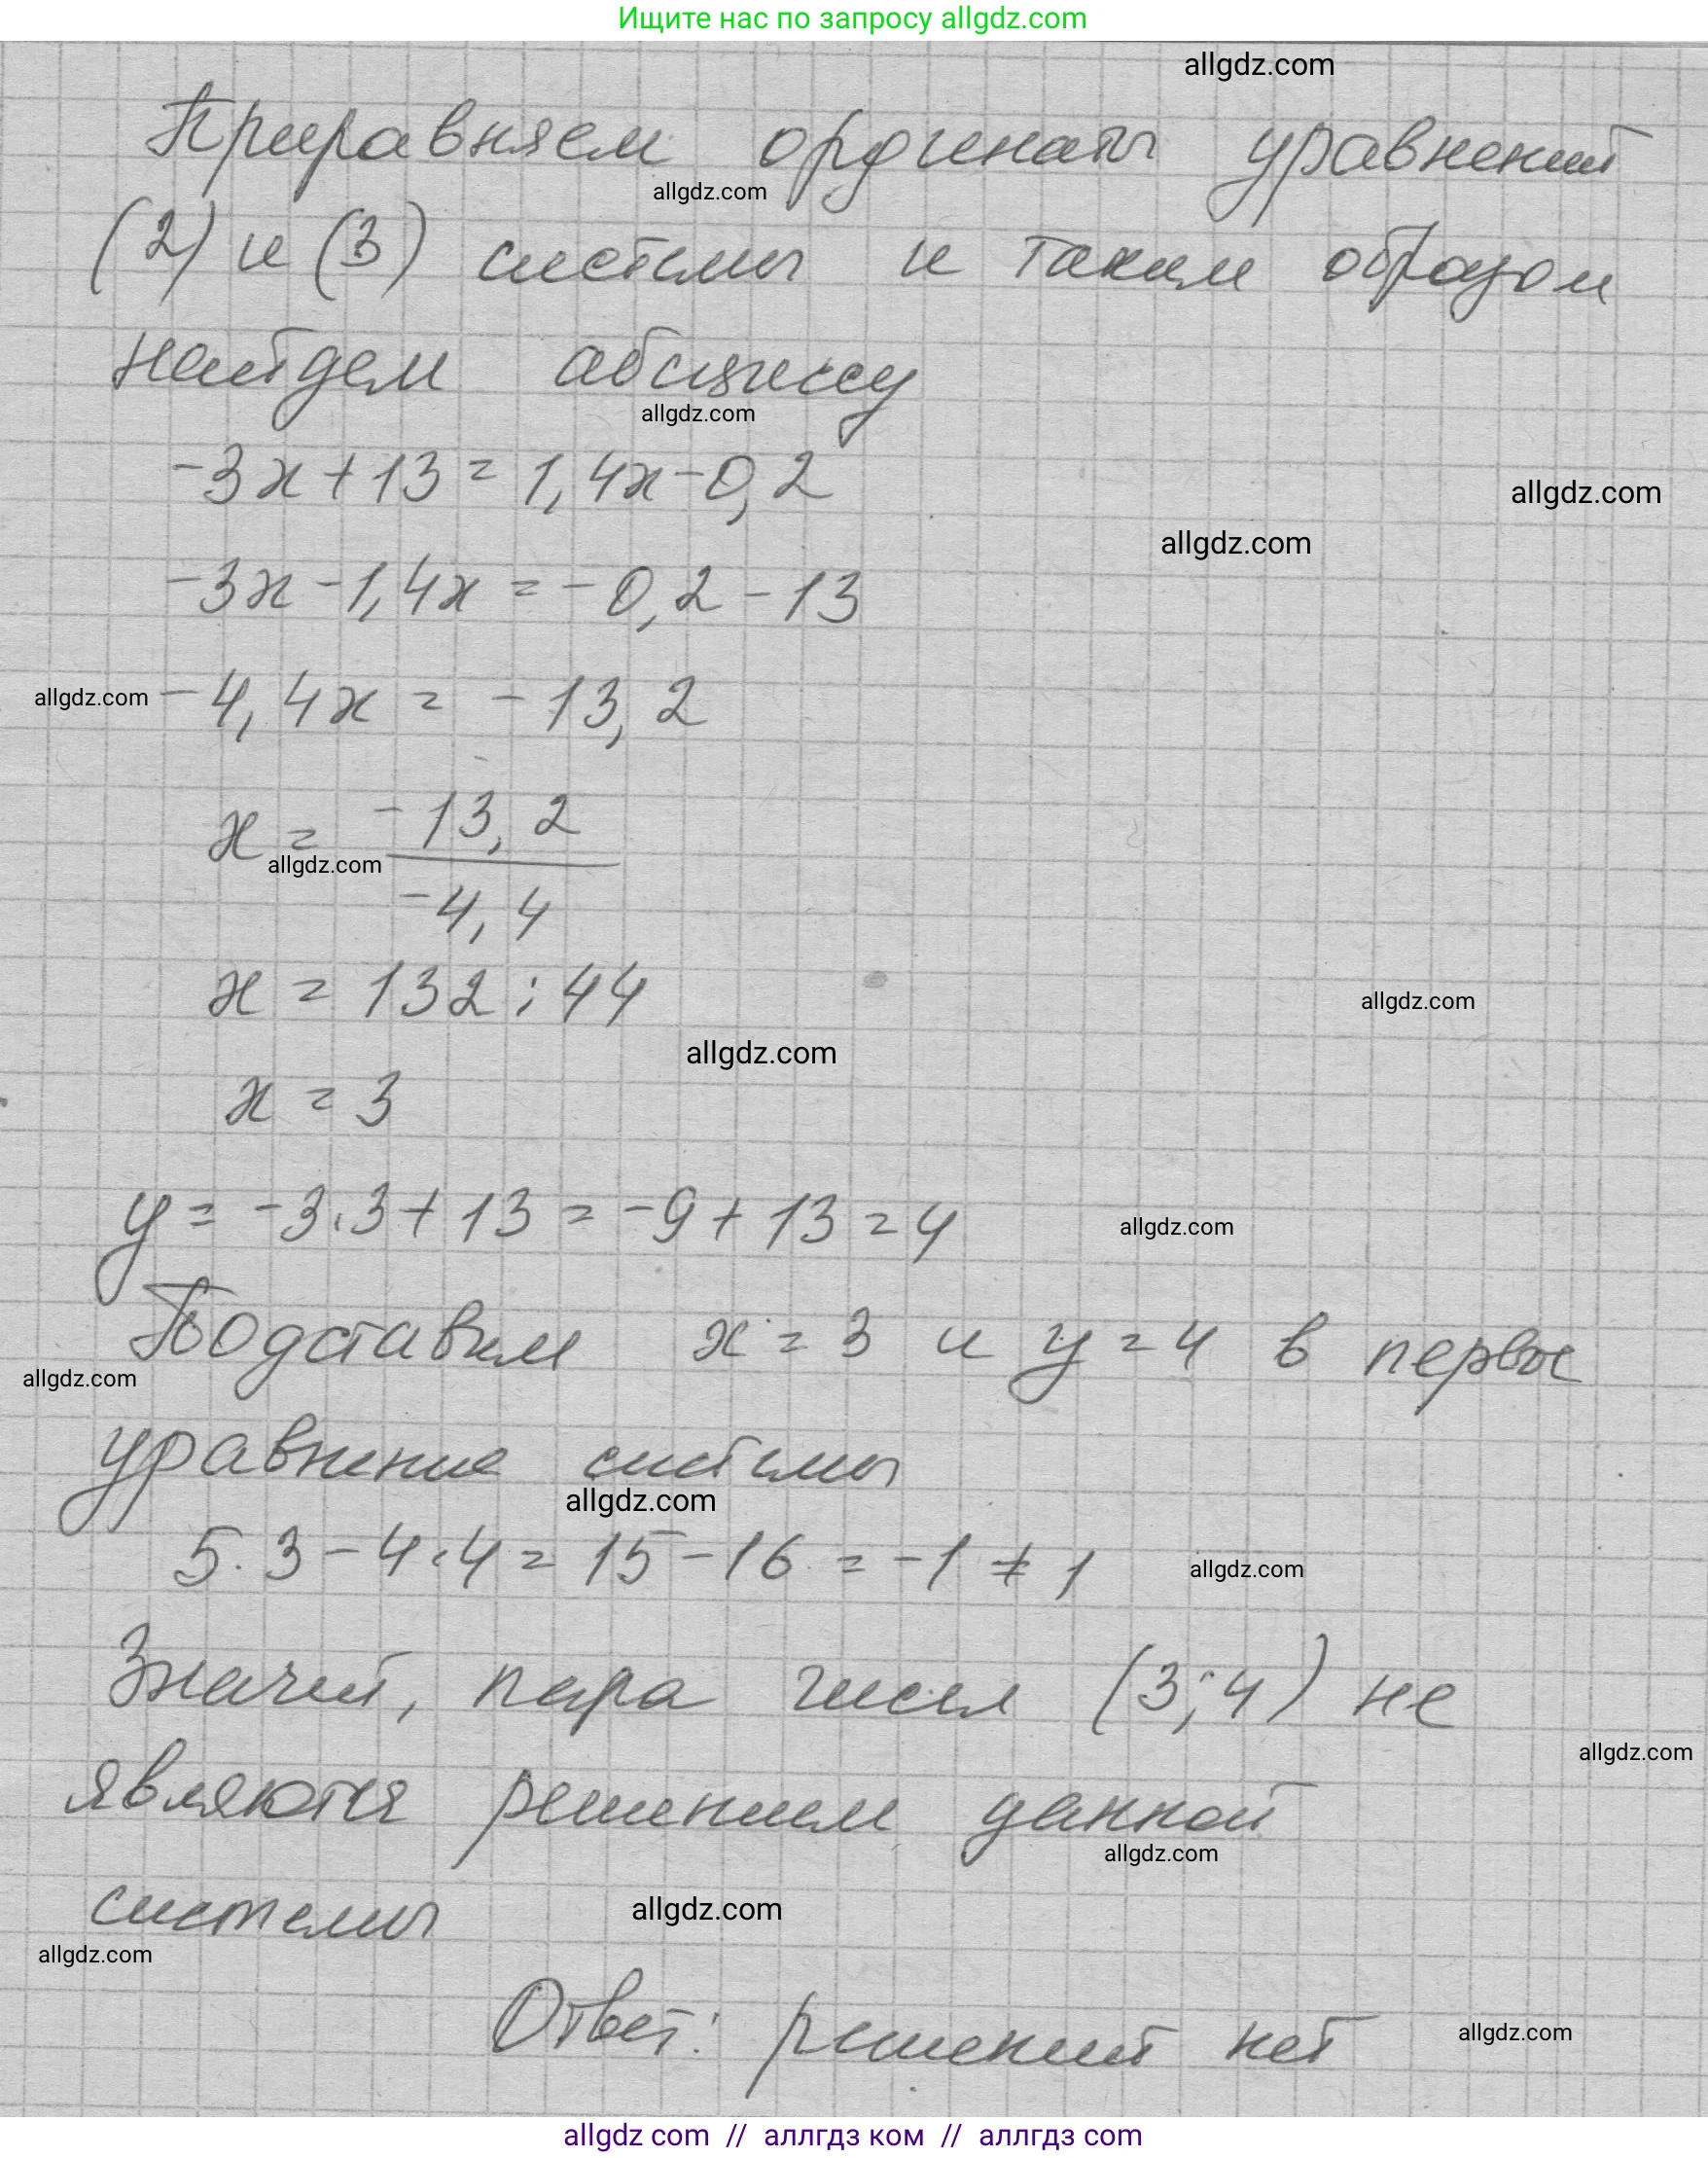 Ищите нас по запросу allgdz.com
allgdz.com
Приравняем ординаты уравнений
allgdz.com
(2) и (3) системы и таким образом
найдем абсциссу
allgdz.com
-3x+13=1,4x-0,2
allgdz.com
allgdz.com
-3x-1,4x=-0,2-13
allgdz.com
-4,4x=-13,2
x=-13,2/-4,4
allgdz.com
x=132:44
allgdz.com
allgdz.com
x=3
y=-3·3+13=-9+13=4
allgdz.com
Подставим x=3 и y=4 в первое
allgdz.com
уравнение системы
allgdz.com
5·3-4·4=15-16=-1≠1
allgdz.com
Значит, пара чисел (3;4) не
allgdz.com
являются решением данной
allgdz.com
системы
allgdz.com
allgdz.com
Ответ: решений нет
allgdz.com
allgdz com // аллгдз ком // аллгдз com